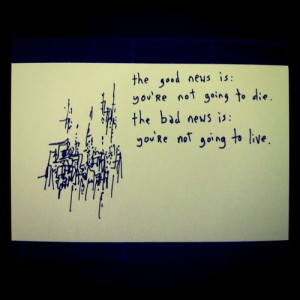 the good news is:
you're not going to die.
the bad news is:
you're not going to live.